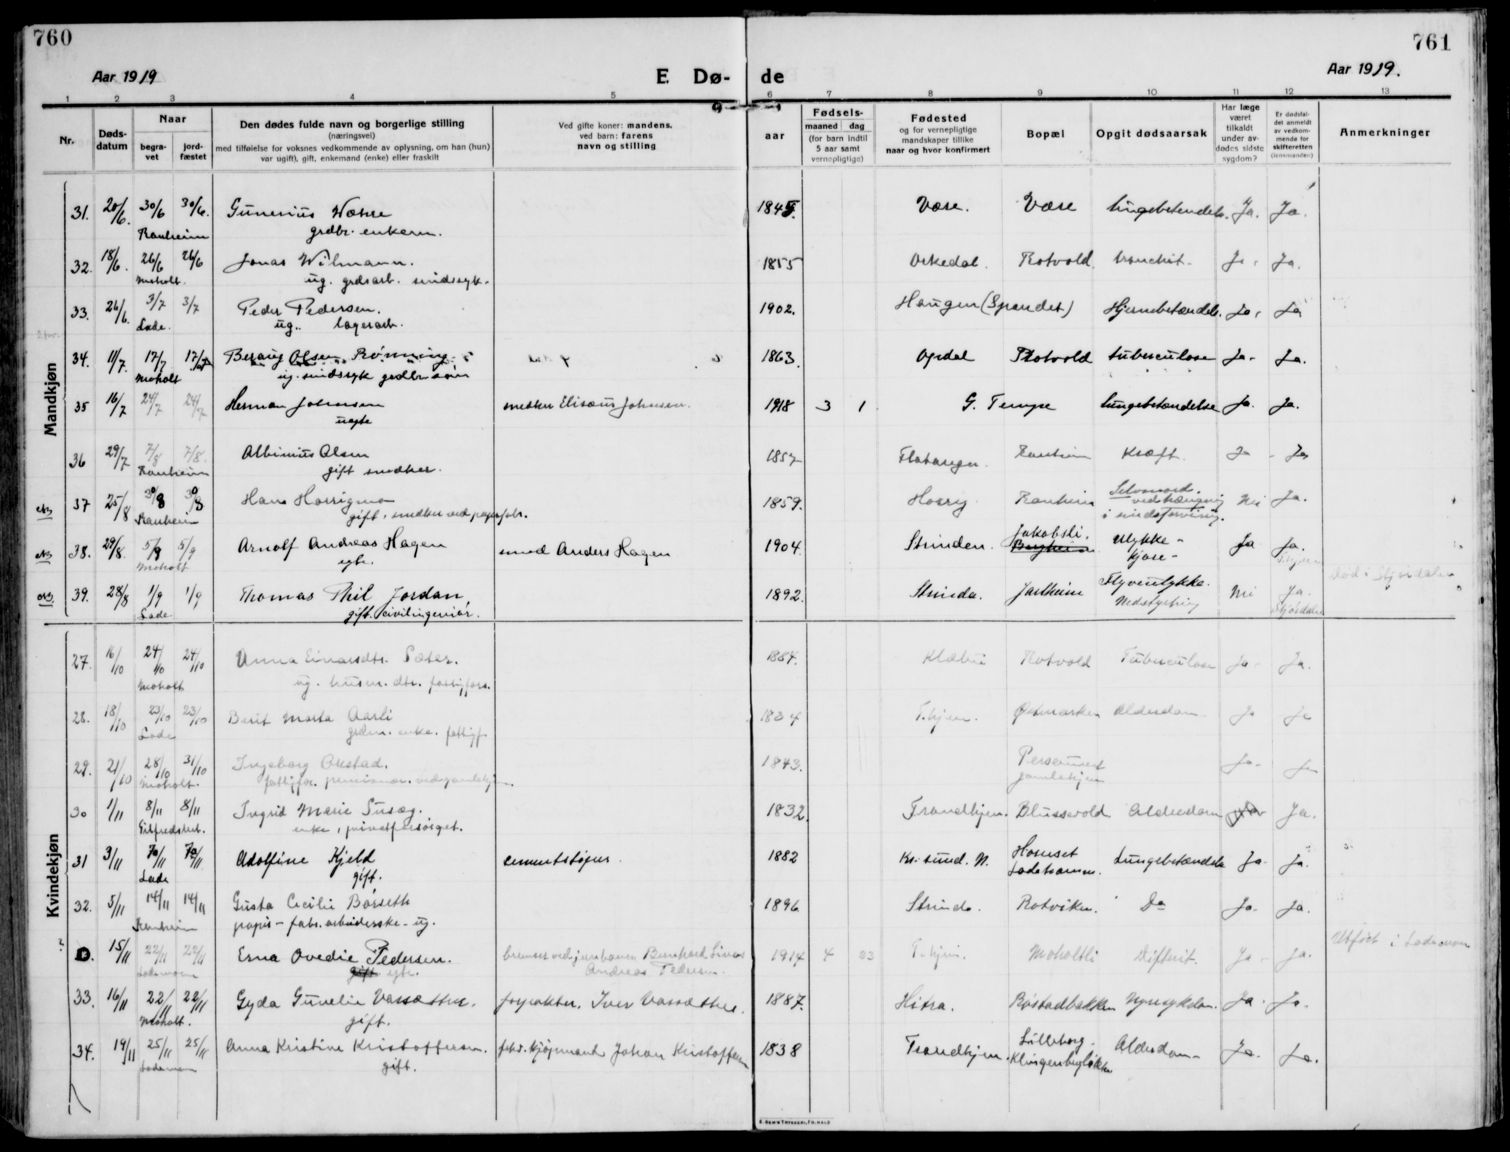 760
761
Aar 1919
E. Dø-
de
Aar 1919.
1 2 3 4 5 6 7 8 9 10 11 12 13
Nr.
Døds-datum
Naar
begra-vet
jord-fæstet
Den dødes fulde navn og borgerlige stilling
(næringsvei)
med tilføielse for voksnes vedkommende av oplysning, om han (hun)
var ugift), gift, enkemand (enke) eller fraskilt
Ved gifte koner: mandens,
ved barn: farens
navn og stilling
aar
Fødsels-
maaned dag
(for barn indtil
5 aar samt
vernepligtige)
Fødested
og for vernepligtige
mandskaper tillike
naar og hvor konfirmert
Bopæl
Opgit dødsaarsak
Har læge
været
tilkaldt
under av-
dødes sidste
sygdom?
Er dødsfal-
det anmeldt
av vedkom-
mende for
skifteretten
(lensmanden)
Anmerkninger
Mandkjøn
31. 20/6. 30/6 30/6. Gunerius Være 1845. Være. Være lungebetændels. Ja. Ja.
Ranheim grdbr. enkem.
32. 18/6. 26/6 26/6 Jonas Wilmann. 1855 Orkedal. Rotvold. bronchit. Ja. Ja.
Moholt. ug. grdsarb. sindssyk.
33. 26/6. 3/7 3/7 Peder Pedersen. 1902. Haugen (Sparbu) Hjernebetændels. Ja. Ja
Lade. ug. lagerarb.
34. 11/7. 17/7 17/7 Olsen Rønning 1863. Opdal Rotvold tuberculose Ja. Ja.
Moholt ug. sindssyk grdbr. søn
35 16/7 24/7 24/7 Herman Johnsen snedker Elisæus Johnsen. 1918 3 1 G. Tempe lungebetændelse Ja. Ja.
uegte
36 29/7 7/8 7/8. Albinius Olsen 1857 Flatanger. Ranheim Kræft. Ja Ja
Ranheim gift snedker.
37 25/8 30/8 30/8 Hans 1859. Ranheim Selvmord. Nei Ja.
Ranheim gift, snedker ved papirfabr. i sindsforvirring.
38. 29/8. 5/9 5/9 Arnolf Andreas Hagen smed Anders Hagen 1904. Strinden. Jakobsli. Ulykke- Ja Ja.
Moholt egte. kjøre-
39. 28/8 1/9 1/9 Thomas Thil Jordan 1892. Strinda. Flyveulykke. Nei Ja.
Lade gift. civilingeniør. Nedstyrtning Stjørdalen
Død i Stjørdalen
Kvindekjøn
27. 16/10 24/10 24/10 Anna Einarsdtr. Sæter. 1854. Klæbu Rotvold Tuberculose Ja. Ja.
Moholt ug. husm. dtr. fattigfors.
28. 18/10 23/10 23/10 Berit Marta Aarli 1834 T.hjem. Østmarken Alderdom. Ja Ja
Lade enke. fattigf.
29. 21/10 28/10 31/10 Ingeborg Okstad. 1843. Ja. Ja
Moholt. fattigfor.
30 1/11 8/11 8/11 Ingrid Marie Susæg. 1832. Trondhjem. Blussuvold Alderdom Ja.
Tilfredshet. enke, privatforsørget.
31 3/11 10/11 10/11 Adolfine Kjeld cementstøper. 1882 Kr.sund. N. Lungebetændels Ja. Ja.
Lade gift. Lademoen.
32. 5/11 14/11 14/11 Gusta Cecilie Børseth 1896 Strinda. Rotviken. Do Ja. Ja.
Ranheim papir-fabr. arbeiderske - ug.
15/11 22/11 22/11 Erna Ovedie Pedersen. bremser ved jernbanen Bernhard 1914 4 23 T.hjem. Moholtli Difterit. Ja. Ja.
Lademoen gift egte. Andreas Pedersen.
Utført i Lademoen
33. 16/11 22/11 22/11 Gyda Gurelie Vassæther. forpakter. Iver Vassæther. 1887. Hitra. Røstadbakken Nyresykdom. Ja. Ja.
Moholt. gift.
34. 19/11 25/11 25/11 Anna Kristine Kristoffersen. fhv. kjøpmand Johan Kristoffersen 1838 Trondhjem. Lilleborg. Alderdom. Ja. Ja.
Lademoen gift. Klingenbergløkke